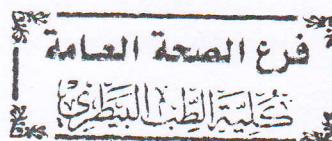 فرع الصحة العامة
كلية الطب البيطري